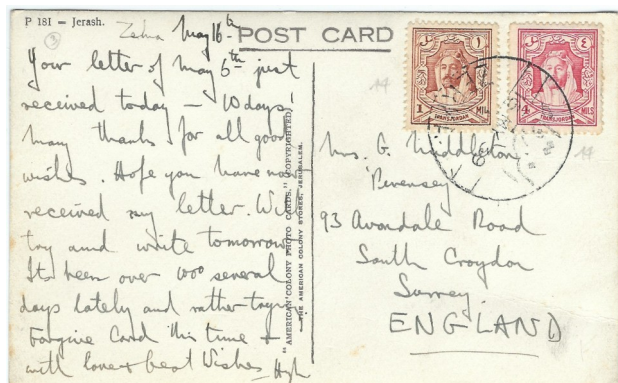 P 181 — Jerash.
POST CARD
Zerka May 16th
Your letter of May 6th just
received today — 10 days!
many thanks for all good
wishes. Hope you have now
received my letter. Will
try and write tomorrow.
Its been over 100° several
days lately and rather trying
Forgive Card this time &
with love & best Wishes Hugh
"AMERICAN COLONY PHOTO CARDS." (COPYRIGHTED)
—THE AMERICAN COLONY STORES, JERUSALEM.
1 MIL
TRANSJORDAN
4 MILS
TRANSJORDAN
Mrs. G. Middleton
'Pevensey'
93 Avondale Road
South Croydon
Surrey.
ENGLAND